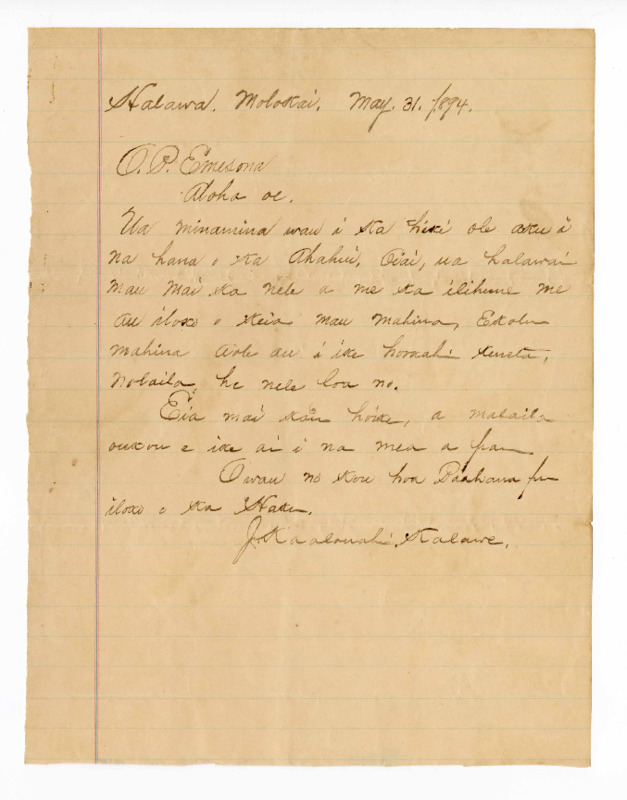 Halawa. Molokai. May. 31. 1894.
O. P. Emesona
Aloha oe.
Ua minamina wau i ka hiki ole aku i
na hana o ka Ahahui, Oiai, ua halawai
mau mai ka nele a me ka ilihune me
au iloko o keia mau mahina, Ekolu
mahina aole au i ike hookahi keneta,
nolaila, he nele loa no.
Eia mai kau hoike, a malaila
oukou e ike ai i na mea a pau
Owau no kou hoa Paahana pu
iloko o ka Haku.
J. Kaalouahi. Kalawe.